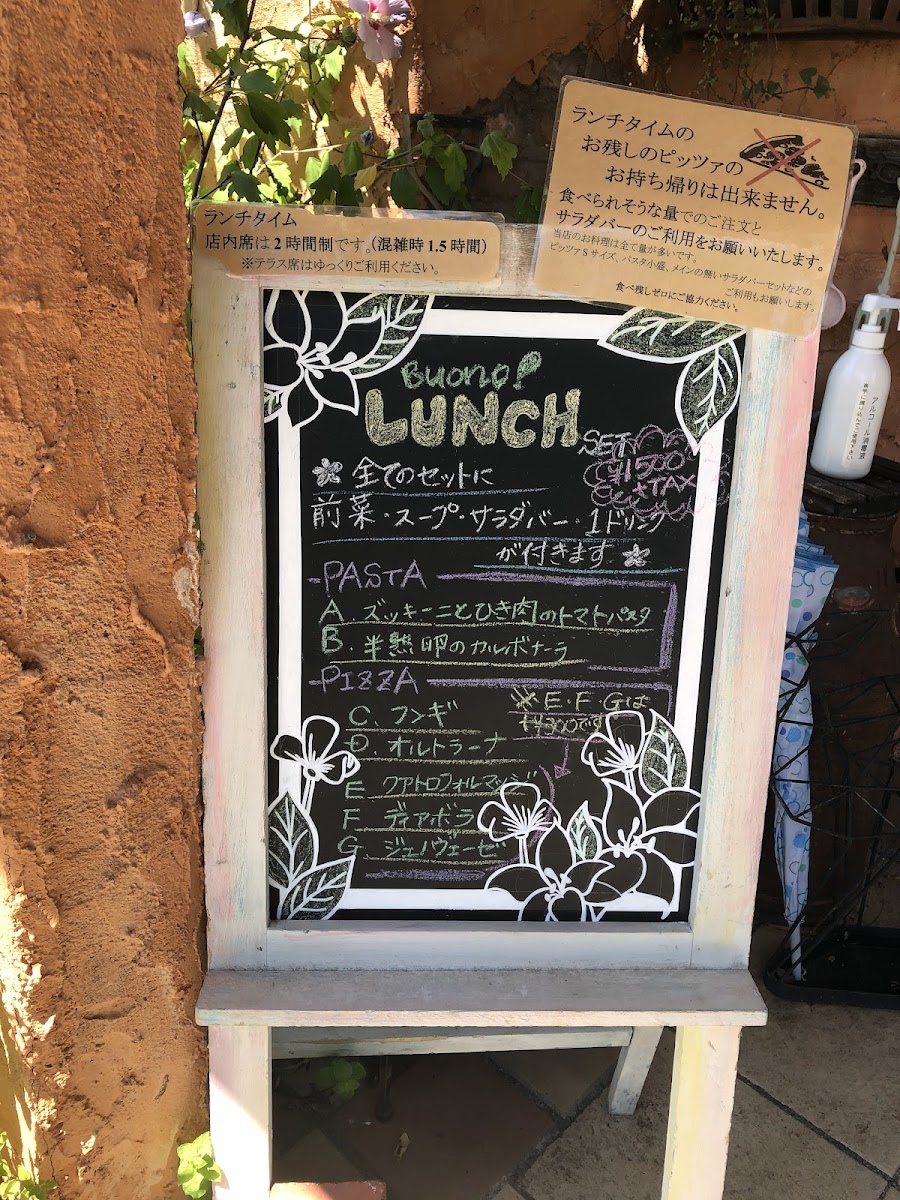 ランチタイムの
お残しのピッツァの
お持ち帰りは出来ません。
食べられそうな量でのご注文と
サラダバーのご利用をお願いいたします。
当店のお料理は全て量が多いです。
ピッツァSサイズ、パスタ小盛、メインの無いサラダバーセットなどの
ご利用もお願いします。
食べ残しゼロにご協力ください。
ランチタイム
店内席は2時間制です。(混雑時1.5時間)
※テラス席はゆっくりご利用ください。
Buono!
LUNCH
SET
¥1500
+TAX
全てのセットに
前菜・スープ・サラダバー・1ドリンク
が付きます
-PASTA
A ズッキーニとひき肉のトマトパスタ
B. 半熟卵のカルボナーラ
-PIZZA
※E・F・Gは
です
C. フンギ
D. オルトラーナ
E クアトロフォルマッジ
F ディアボラ
G ジェノヴェーゼ
アルコール消毒液